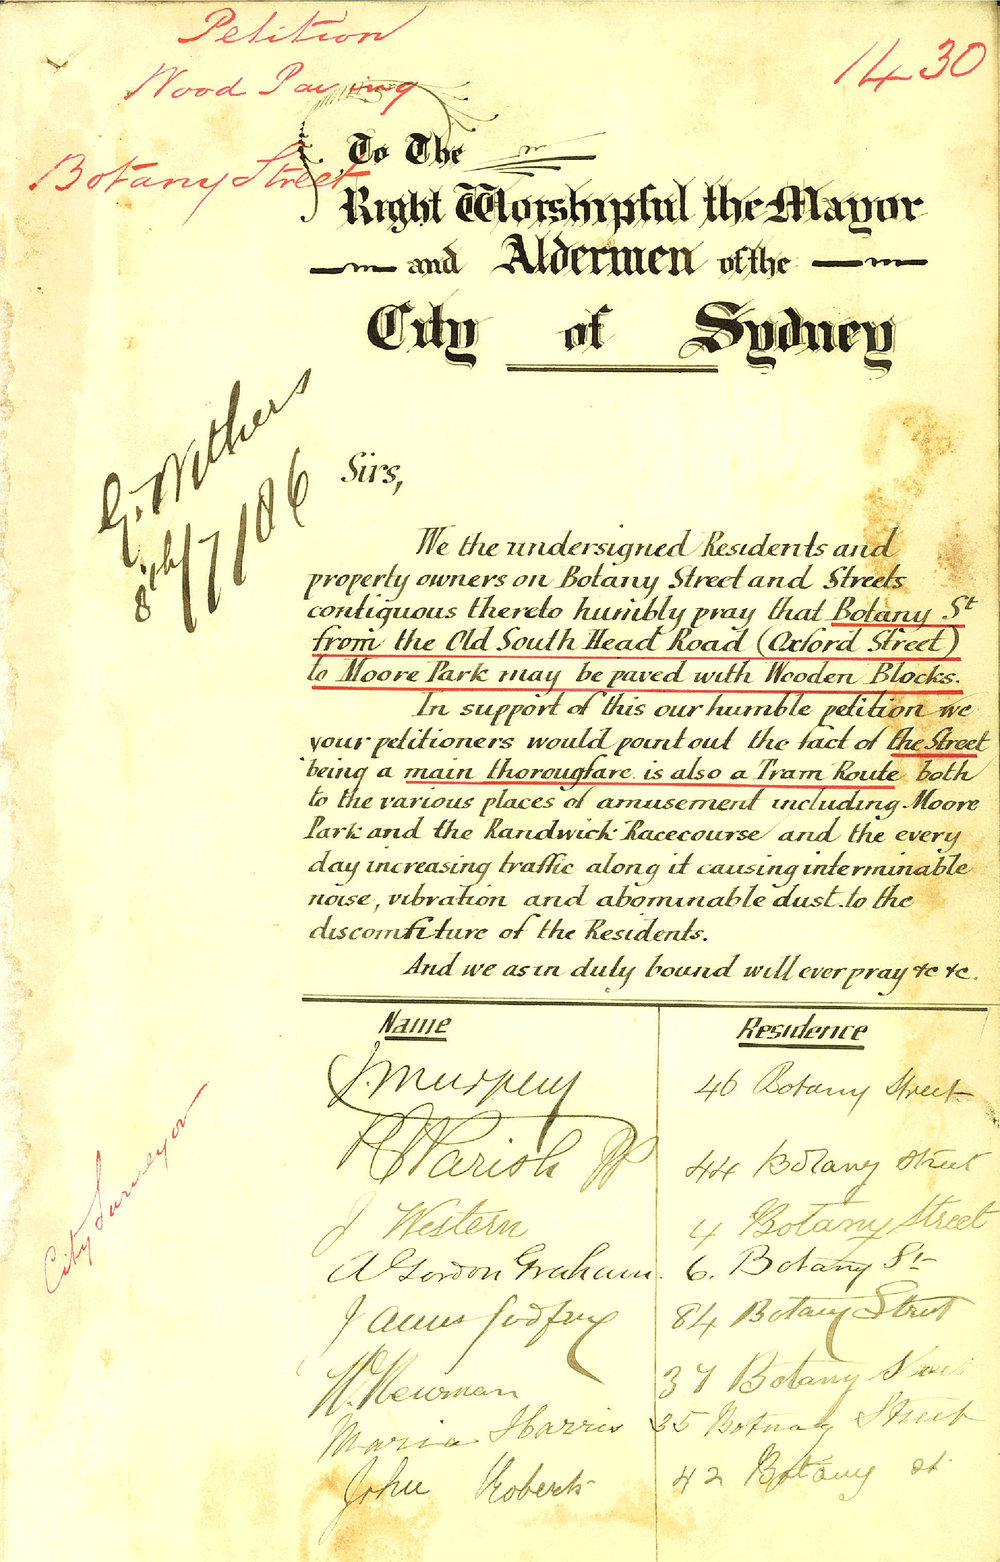 Petition
Wood Paving
Botany Street
1430
To The
Right Worshipful the Mayor
and Aldermen of the
City of Sydney
G. Withers
8th/7/86
Sirs,
We the undersigned Residents and
property owners on Botany Street and Streets
contiguous thereto humbly pray that Botany St
from the Old South Head Road (Oxford Street)
to Moore Park may be paved with Wooden Blocks.
In support of this our humble petition we
your petitioners would point out the fact of the Street
being a main thorougfare is also a Tram Route both
to the various places of amusement including Moore
Park and the Randwick Racecourse and the every
day increasing traffic along it causing interminable
noise, vibration and abominable dust to the
discomfiture of the Residents.
And we as in duty bound will ever pray &c &c.
Name Residence
J. Murphy 46 Botany Street
Parish JP 44 Botany Street
J Western 4 Botany Street
A Gordon Graham. 6. Botany St
James Godfrey 84 Botany Street
W. Newman 37 Botany Street
Maria Harris 35 Botnay Street
John Roberts 42 Botany St
City Surveyor